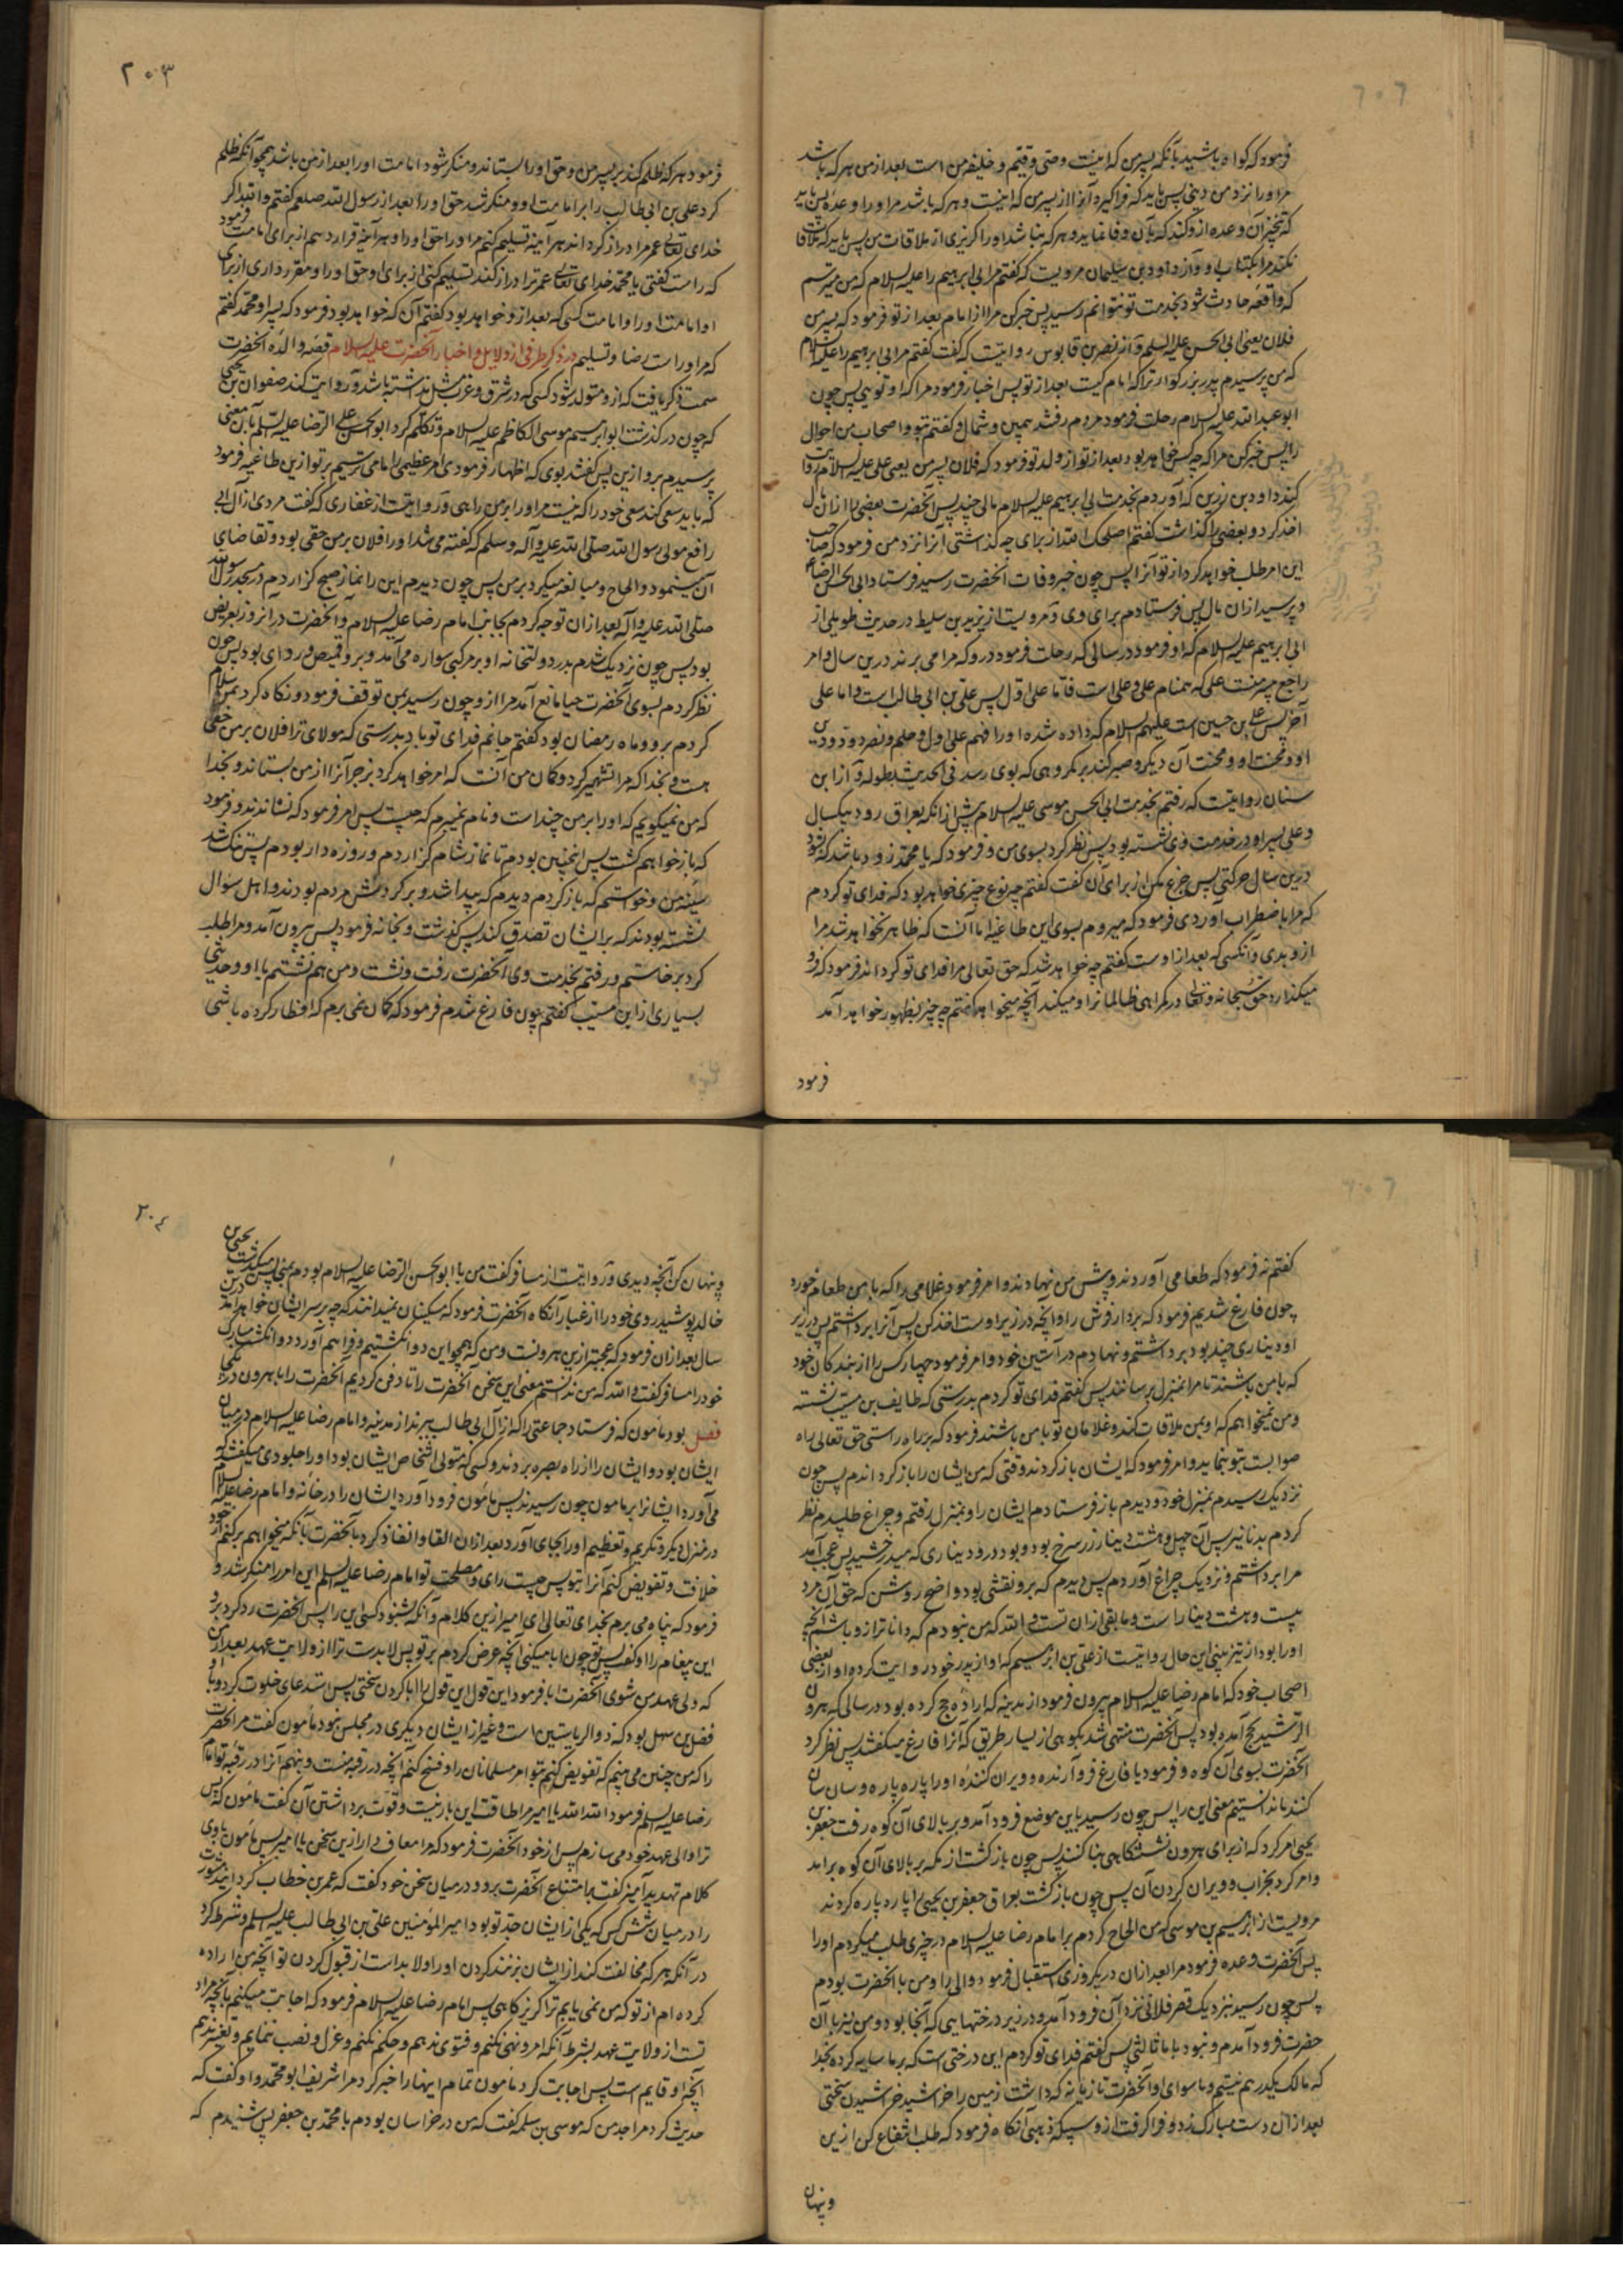 فرمود که گواه باشید بآنکه پسر من که اینست وصی و قیّم و خلیفه من است بعد از من هر که باشد
مر او را نزد من دینی پس باید که فرا گیرد آنرا از پسر من که اینست و هر که باشد مر او را وعده پس باید
که تنجیز آن وعده ازو کند که بآن وفا نماید و هر که نباشد او را گریزی از ملاقات من پس باید که ملاقات
نکند مرا بکتاب او و از داود بن سلیمان مرویست که گفتم مر ابی ابرهیم را علیه السلام که من میترسم
که واقعه حادث شود بخدمت تو نتوانم رسید پس خبر کن مرا از امام بعد از تو فرمود که پسر من
فلان یعنی ابی الحسن علیه السلم و از نصر بن قابوس روایتست که گفت گفتم مر ابی ابرهیم را علیه السلام
که من پرسیدم پدر بزرگوار ترا که امام کیست بعد از تو پس اخبار فرمود مرا که او توئی پس چون
ابو عبد الله علیه السلام رحلت فرمود مردم رفتند بیمین و شمال و گفتم بتو و اصحاب من احوال
را پس خبر کن مرا که چه کس خواهد بود بعد از تو از ولد تو فرمود که فلان پسر من یعنی علی علیه السلام روایت
کند داود بن زربی که آوردم بخدمت ابی ابرهیم علیه السلام مالی چند پس آنحضرت بعضی را از ان مال
اخذ کرد و بعضی را گذاشت گفتم اصلحک الله از برای چه گذاشتی آنرا نزد من فرمود که صاحب
این امر طلب خواهد کرد از تو آنرا پس چون خبر وفات آنحضرت رسید فرستاد ابی الحسن الرضا ع
و پرسید از ان مال پس فرستادم برای وی و مرویست از یزید بن سلیط در حدیث طویلی از
ابی ابرهیم علیه السلام که او فرمود در سالی که رحلت فرمود درو که مرا می برند درین سال و امر
راجع بپسر منست علی که همنام علی و علی است فامّا علی اول پس علی بن ابی طالب است و اما علی
آخر پس علی بن حسین است علیهم السلام که داده شده او را فهم علی اول و حلم و نصر و ود و دین
او و محنت او و محنت آن دیگر و صبر کند بر مکروهی که بوی رسد فی الحدیث بطوله و از ابن
سنان روایتست که رفتم بخدمت ابی الحسن موسی علیه السلام پیش از انکه بعراق رود بیکسال
و علی پسر او در خدمت وی نشسته بود پس نظر کرد بسوی من و فرمود که یا محمد زود باشد که شود
درین سال حرکتی پس جزع مکن از برای آن گفت گفتم چه نوع چیزی خواهد بود که فدای تو کردم
که مرا باضطراب آوردی فرمود که میروم بسوی این طاغیه اما آنست که ظاهر نخواهد شد مرا
ازو بدی و آنکسی که بعد از اوست گفتم چه خواهد شد که حق تعالی مرا فدای تو کرداند فرمود که فرو
میگذارد حق سبحانه و تعالی در گمراهی ظالمانرا و میکند آنچه میخواهد گفتم چه چیز بظهور خواهد آمد
فرمود
۲۰۳
فرمود هر که ظلم کند بر پسر من و حق او را بستاند و منکر شود امامت او را بعد از من باشد همچو آنکه ظلم
کرد علی بن ابی طالب را بر امامت او و منکر شد حق او را بعد از رسول الله صلعم گفتم والله اگر
خدای تعالی عمر مرا دراز کرداند هر آینه تسلیم کنم مر او را حق او را و هر آینه قرار دهم از برای امامت فرمود
که راست گفتی یا محمد خدای تعالی عمر ترا دراز کند تسلیم کنی از برای او حق او را و مقرر داری از برای
او امامت او را و امامت کسی که بعد ازو خواهد بود گفتم آن که خواهد بود فرمود که پسر او محمد گفتم
که مر او راست رضا و تسلیم در ذکر طرفی از دلایل و اخبار آنحضرت علیه السلام قصه والده آنحضرت
سمت ذکر یافت که ازو متولد شود کسی که در شرق و غرب مثل نداشته باشد و روایت کند صفوان بن یحیی
که چون درگذشت ابو ابرهیم موسی الکاظم علیه السلام و تکلّم کرد ابو الحسن علی الرضا علیه السلم باین معنی
پرسیدم برو ازین پس گفتند بوی که اظهار فرمودی امر عظیمی را ما می ترسیم بر تو ازین طاغیه فرمود
که باید سعی کند سعی خود را که نیست مر او را بر من راهی و روایتست از غفاری که گفت مردی از آل ابی
رافع مولی رسول الله صلی الله علیه و آله و سلم که گفته می شد او را فلان بر من حقی بود و تقاضای
آن مینمود و الحاح و مبالغه میکرد بر من پس چون دیدم این را نماز صبح گزاردم در مسجد رسول الله
صلی الله علیه و آله بعد از ان توجه کردم بجانب امام رضا علیه السلام و آنحضرت در آنروز بعریض
بود پس چون نزدیک شدم بدر دولتخانه او بر مرکبی سواره می آمد و برو قمیص و ردای بود پس چون
نظر کردم بسوی آنحضرت حیا مانع آمد مرا ازو چون رسید بمن توقف فرمود و نگاه کرد بمن سلام
کردم برو و ماه رمضان بود گفتم جانم فدای تو باد بدرستی که مولای ترا فلان بر من حقی
هست و بخدا که مرا تشهیر کرد و گمان من آنست که امر خواهد کرد بزجر آنرا از من بستاند و بخدا
که من نمیگویم که او را بر من چند است و نام نمیبرم که چیست پس امر فرمود که نشاندند و فرمود
که باز خواهم گشت پس اینچنین بودم تا نماز شام گزاردم و روزه دار بودم پس تنگ شد
سینه من و خواستم که باز گردم دیدم که پیدا شد و بر گردش مردم بودند و اهل سؤال
نشسته بودند که بر ایشان تصدق کند پس گذشت و بخانه فرمود پس بیرون آمد و مرا طلب
کرد برخاستم و رفتم بخدمت وی آنحضرت رفت و نشست و من هم نشستم با او و حدیثی
بسیاری از ابن مسیّب گفتم چون فارغ شدم فرمود که گمان نمی برم که افطار کرده باشی
گفتم نه فرمود که طعامی آوردند و پیش من نهادند و امر فرمود غلامی را که با من طعام خورد
چون فارغ شدیم فرمود که بردار فرش را و آنچه در زیر اوست اخذ کن پس آنرا برداشتم پس در زیر
او دیناری چند بود برداشتم و نهادم در آستین خود و امر فرمود چهار کس را از بندگان خود
که با من باشند تا مرا بمنزل برسانند پس گفتم فدای تو کردم بدرستی که طایف بن مسیّب نشسته
و من نمیخواهم که او بمن ملاقات کند و غلامان تو با من باشند فرمود که بر راه راستی حق تعالی راه
صوابت بتو بنماید و امر فرمود که ایشان باز گردند وقتی که من ایشان را باز گردانم پس چون
نزدیک رسیدم بمنزل خود و دیدم باز فرستادم ایشان را و بمنزل رفتم و چراغ طلبیدم نظر
کردم بدنانیر پس آن چهل و هشت دینار زر سرخ بود و بود درو دیناری که میدرخشید پس عجب آمد
مرا برداشتم و نزدیک چراغ آوردم پس دیدم که برو نقشی بود واضح روشن که حق آن مرد
بیست و هشت دینار است و ما بقی از ان تست والله که من نبودم که دانا تر ازو باشم آنچه
او را بود از تیزبینی این حال روایتست از علی بن ابرهیم که او از پدر خود روایت کرده او از بعضی
اصحاب خود که امام رضا علیه السلام بیرون فرمود از مدینه که اراده حج کرده بود در سالی که هرون
الرشید بحج آمده بود پس آنحضرت منتهی شد بکوهی از یسار طریق که آنرا فارغ میگفتند پس نظر کرد
آنحضرت بسوی آن کوه و فرمود یا فارغ فرو آرنده و ویران کننده او را پاره پاره و سان سان
کنند ما ندانستیم معنی این را پس چون رسید باین موضع فرود آمد و بر بالای آن کوه رفت جعفر بن
یحیی امر کرد که از برای هرون نشستگاهی بنا کنند پس چون بازگشت از مکه بر بالای آن کوه برآمد
و امر کرد بخراب و ویران کردن آن پس چون بازگشت بعراق جعفر بن یحیی را پاره پاره کردند
مرویست از ابرهیم بن موسی که من الحاح کردم بر امام رضا علیه السلام در چیزی طلب میکردم او را
پس آنحضرت وعده فرمود مرا بعد از ان در یک روزی استقبال فرمود والی را و من با آنحضرت بودم
پس چون رسید نزدیک قصر فلانی نزد آن فرود آمد و در زیر درختهایی که آنجا بود و من نیز با آن
حضرت فرود آمدم و نبود با ما ثالثی پس گفتم فدای تو کردم این درختی است که بر ما سایه کرده بخدا
که مالک یکدرهم نیستم و ما سوای او آنحضرت تازیانه که داشت زمین را خراشید خراشیدن سختی
بعد از ان دست مبارک زد و فرا گرفت ازو سبیکه ذهبی آنگاه فرمود که طلب انتفاع کن ازین
و پنهان
۲۰۴
و پنهان کن آنچه دیدی و روایتست از مسافر گفت من با ابو الحسن الرضا علیه السلام بودم بمنی پس میگذشت یحیی بن
خالد پوشید روی خود را از غبار آنگاه آنحضرت فرمود که مسکینان نمیدانند که چه بر سر ایشان خواهد آمد درین
سال بعد از ان فرمود که عجبتر ازین هرونست و من که همچو این دو انگشتیم و فراهم آورد دو انگشت مبارک
خود را مسافر گفت والله که من ندانستم معنی این سخن آنحضرت را تا دفن کردیم آنحضرت را با هرون در یکجا
فصل بود مامون که فرستاد جماعتی را که از آل ابی طالب ببرند از مدینه و امام رضا علیه السلام در میان
ایشان بود و ایشان را از راه بصره بردند و کسی که متولی اشخاص ایشان بود او را جلودی میگفتند که
می آورد ایشانرا بر مامون چون رسیدند پس مامون فرود آورد ایشان را در خانه و امام رضا علیه السلام
در منزل دیگر و تکریم و تعظیم او را بجای آورد بعد از ان القا و انفاذ کرد بآنحضرت بآنکه میخواهم برکنم از خود
خلافت و تفویض کنم آنرا بتو پس چیست رای و مصلحت تو امام رضا علیه السلم این امر را منکر شد و
فرمود که پناه می برم بخدای تعالی ای امیر ازین کلام و آنکه شنود کسی این را پس آنحضرت رد کرد برو
این پیغام را او گفت پس تو چون ابا میکنی آنچه عرض کردم بر تو پس لابدست ترا از ولایت عهد بعد از من
که ولی عهد من شوی آنحضرت ابا فرمود این قول این قول را ابا کردن سختی پس استدعای خلوت کرد و با او
فضل بن سهل بود که ذو الریاستین است و غیر از ایشان دیگری در مجلس نبود مامون گفت مر آنحضرت
را که من چنین می بینم که تفویض کنم بتو امر مسلمانان را و فسخ کنم آنچه در رقبه منست و بنهم آنرا در رقبه تو امام
رضا علیه السلم فرمود الله الله یا امیر مرا طاقت این بار نیست و قوت برداشتن آن گفت مامون که پس
ترا والی عهد خود می سازم پس از خود آنحضرت فرمود که مرا معاف دار ازین سخن یا امیر پس مامون با وی
کلام تهدید آمیز گفت بر امتناع آنحضرت برو و در میان سخن خود گفت که عمر بن خطاب گردانید مشورت
را در میان شش کس که یکی از ایشان جد تو بود امیر المؤمنین علی بن ابی طالب علیه السلم و شرط کرد
در آنکه هر که مخالفت کند از ایشان بزنند گردن او را و لا بد است از قبول کردن تو آنچه من اراده
کرده ام از تو که من نمی یابم ترا گریزگاهی پس امام رضا علیه السلام فرمود که اجابت میکنم بآنچه مراد
تست از ولایت عهد بشرط آنکه امر و نهی نکنم و فتوی ندهم و حکم نکنم و عزل و نصب ننمایم و تغییر ندهم
آنچه او قایم است پس اجابت کرد مامون تمام اینها را خبر کرد مرا شریف ابو محمد و او گفت که
حدیث کرد مرا جد من که موسی بن سلمه گفت که من در خراسان بودم با محمد بن جعفر پس شنیدم که